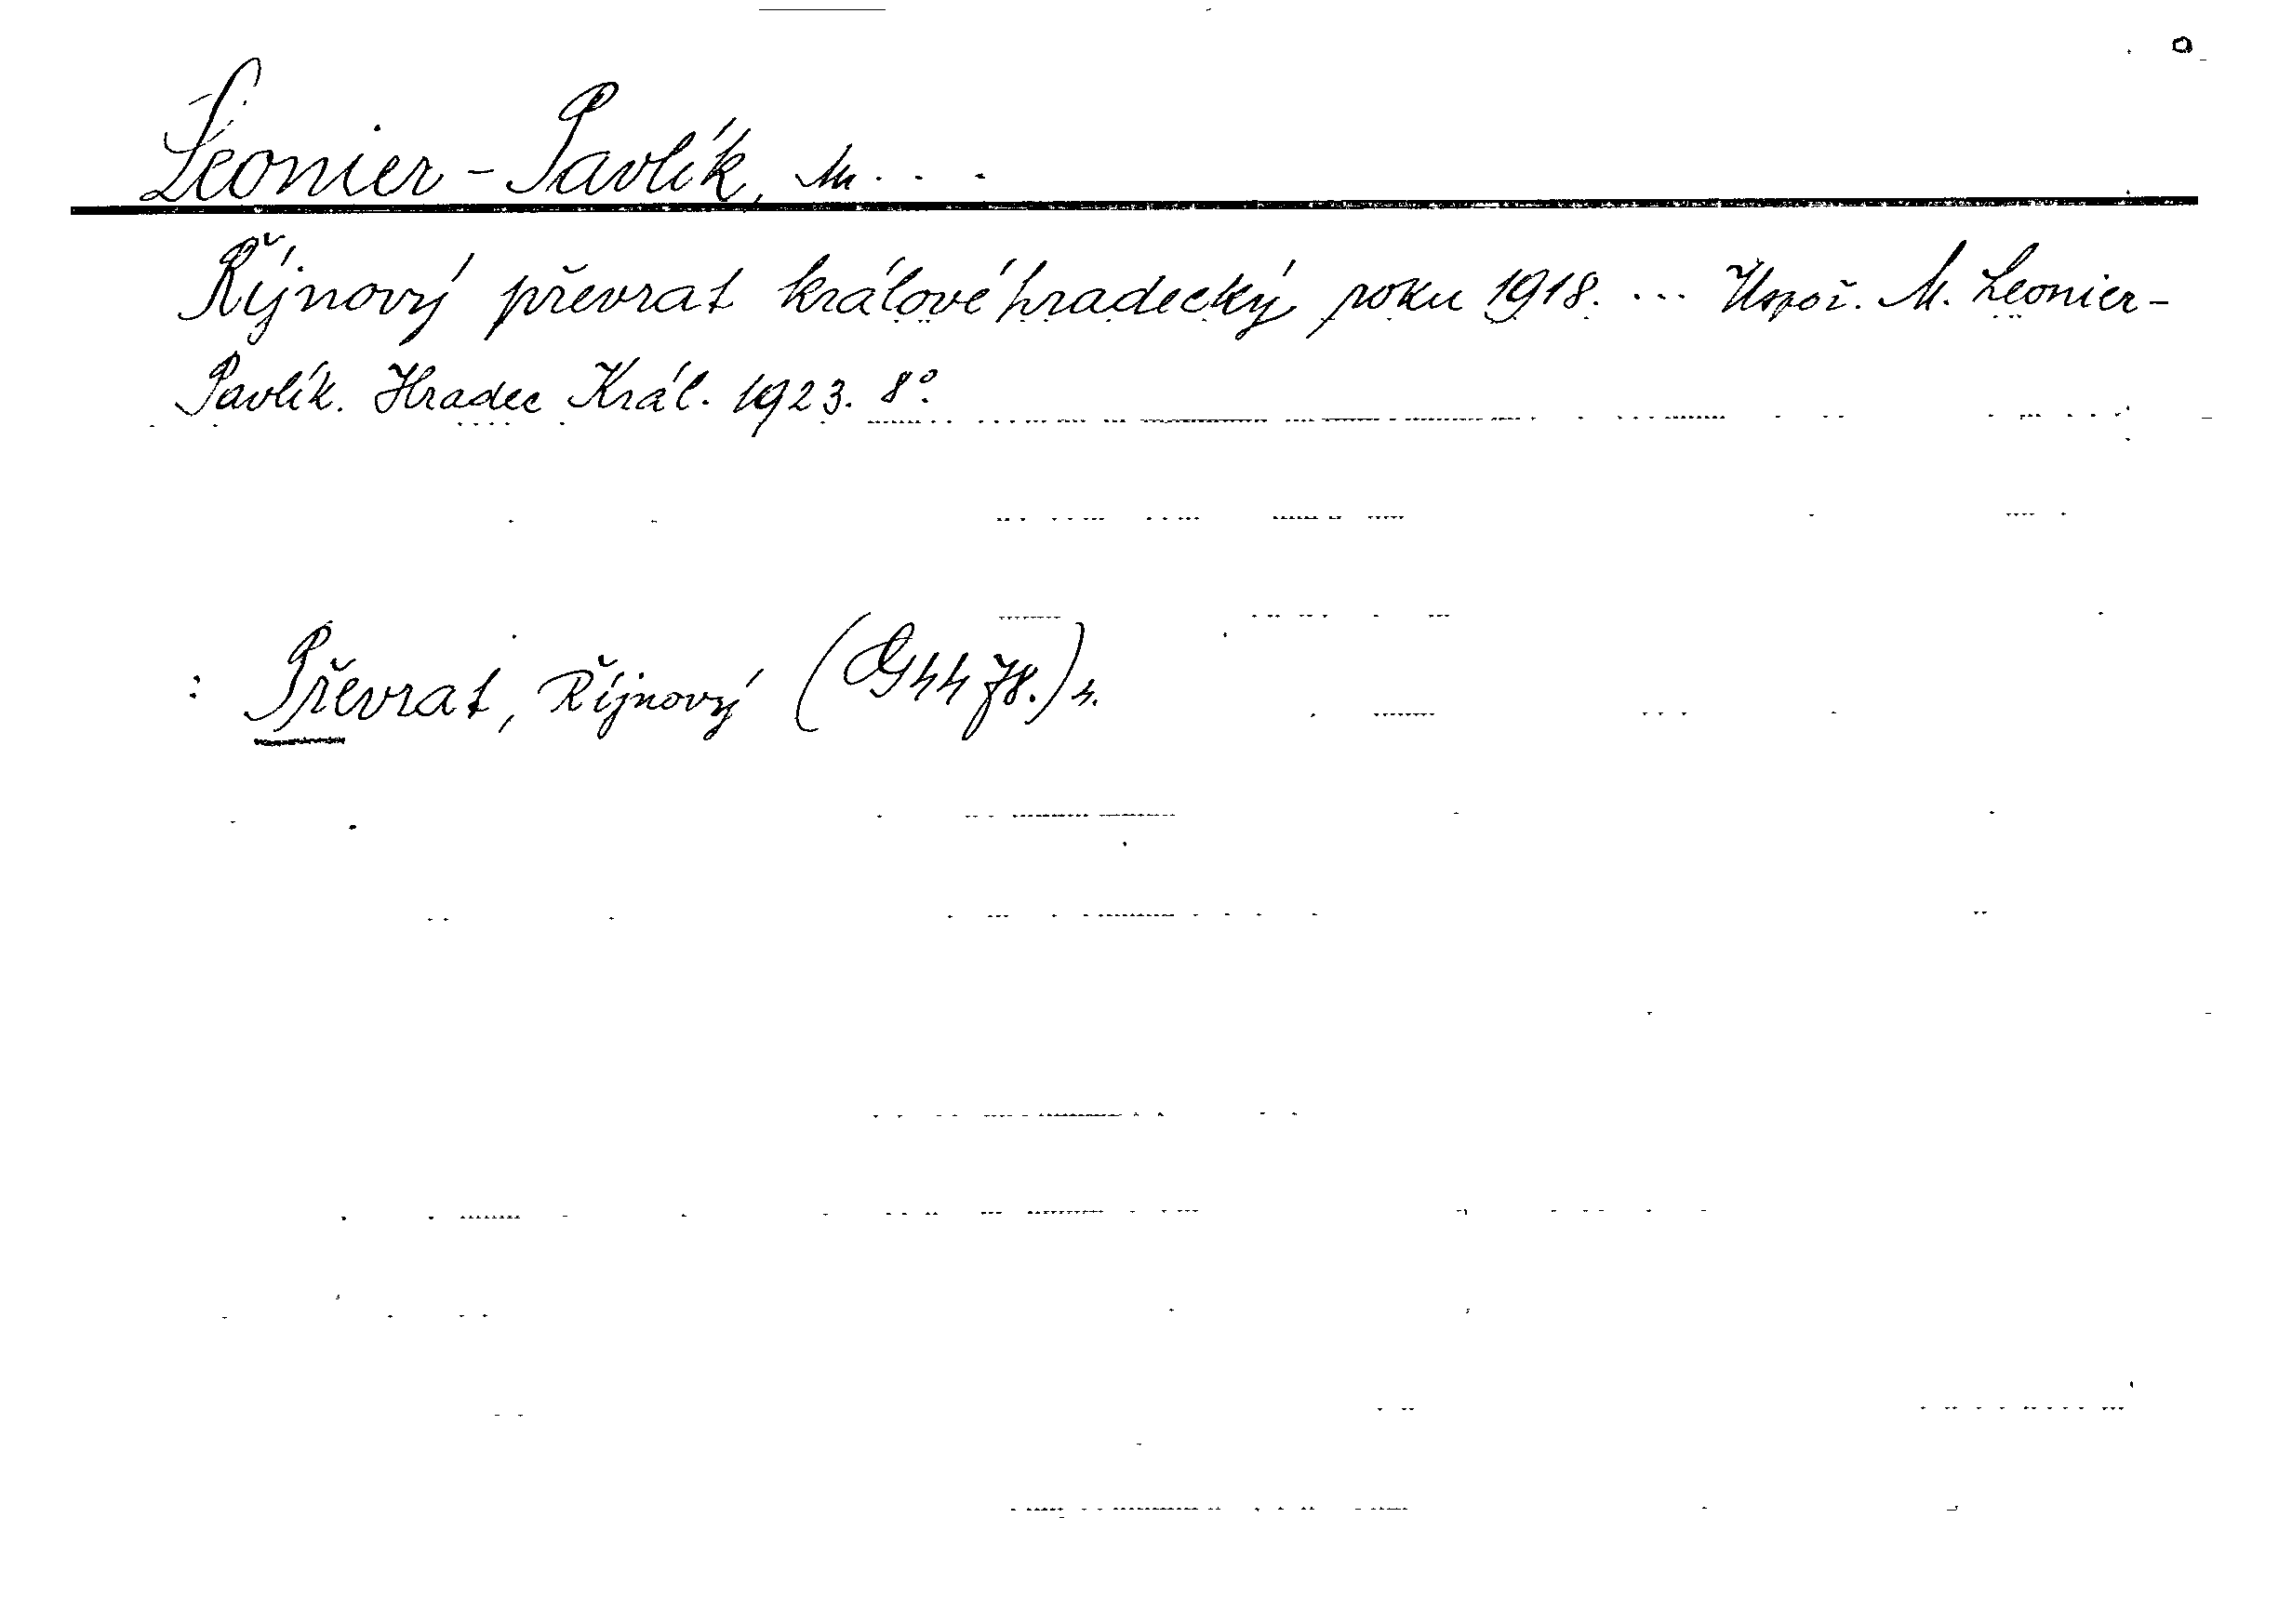 Leonier - Pavlík, M...
Říjnový převrat královéhradecký roku 1918. ... Uspoř. M. Leonier-
Pavlík. Hradec Král. 1923. 8°.
: Převrat, Říjnový (G 4478.)